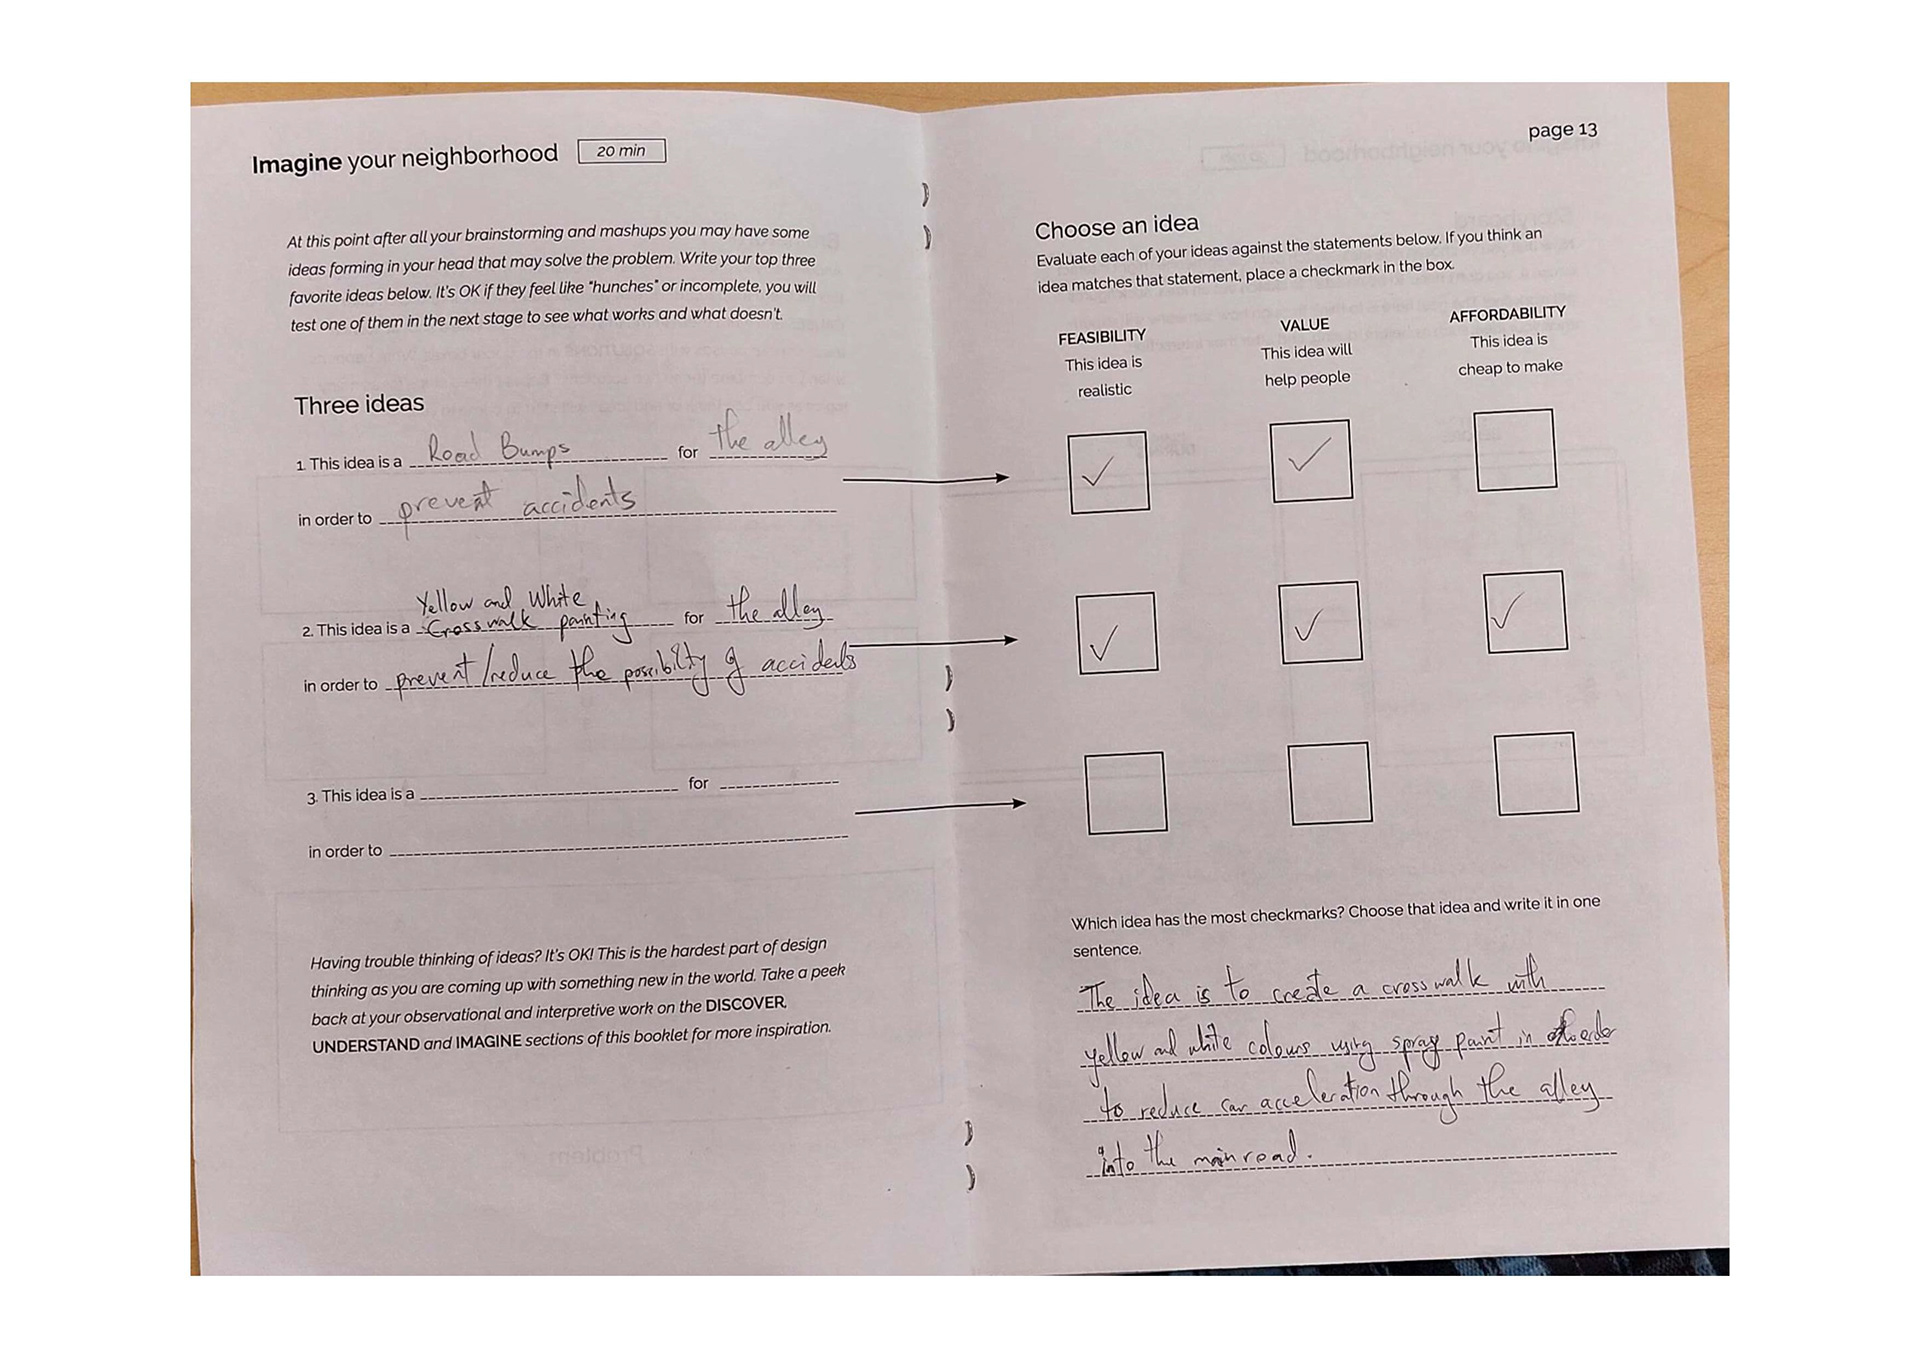 Imagine your neighborhood 20 min
At this point after all your brainstorming and mashups you may have some
ideas forming in your head that may solve the problem. Write your top three
favorite ideas below. It's OK if they feel like "hunches" or incomplete, you will
test one of them in the next stage to see what works and what doesn't.
Three ideas
1. This idea is a Road Bumps for the alley
in order to prevent accidents
Yellow and White
2. This idea is a Crosswalk painting for the alley
in order to prevent/reduce the possibilty of accidents
3. This idea is a for
in order to
Having trouble thinking of ideas? It's OK! This is the hardest part of design
thinking as you are coming up with something new in the world. Take a peek
back at your observational and interpretive work on the DISCOVER,
UNDERSTAND and IMAGINE sections of this booklet for more inspiration.
page 13
Choose an idea
Evaluate each of your ideas against the statements below. If you think an
idea matches that statement, place a checkmark in the box.
FEASIBILITY VALUE AFFORDABILITY
This idea is This idea will This idea is
realistic help people cheap to make
Which idea has the most checkmarks? Choose that idea and write it in one
sentence.
The idea is to create a crosswalk with
yellow and white colours using spray paint in order
to reduce car acceleration through the alley
into the main road.